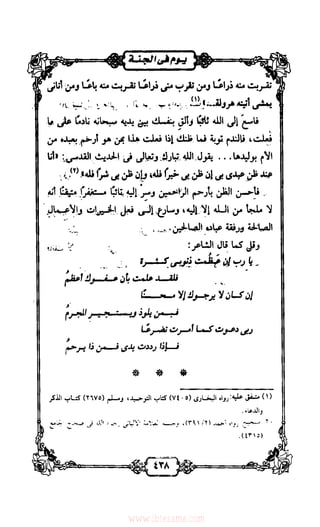 يوم في الجنة
تقربت منه ذراعًا ومن تقرب مني ذراعًا تقربت منه باعًا ومن أتاني
يمشي أتيته هرولة»(١).
فاسع إلى الله تائبًا وألق بنفسك بين يديه سبحانه نادمًا على ما
فعلت، فالندم توبة فما ظنك إذا فعلت هذا بمن هو أرحم بعبده من
الأم بولدها... يقول الله تبارك وتعالى في الحديث القدسي: «أنا
عند ظن عبدي بي إن ظن بي خيرًا فله، وإن ظن بي شرًا فله»(٢).
فأحسن الظن بأرحم الراحمين وسر إليه تائبًا مستغفرًا متيقنًا أنه
لا ملجأ من الله إلا إليه، وسارع إلى فعل الخيرات والأعمال
الصالحة ورفقة عباده الصالحين.
وكما قال الشاعر:
يا رب إن عظمت ذنوبي كثرة
فلقد علمت بأن عفوك أعظم
إن كان لا يرجوك إلا محسن
فبمن يلوذ ويستجير المجرم
ربي دعوت كما أمرت تضرعًا
فإذا رددت يدي فمن ذا يرحم
* * *
(١) متفق عليه: رواه البخاري (٧٤٠٥) كتاب التوحيد، ومسلم (٢٦٧٥) كتاب الذكر
والدعاء.
(٢) صحيح: رواه أحمد (٣٩١/٢)، وصححه العلامة الألباني رحمه الله في صحيح الجامع
(٤٣١٥).
٤٣٨